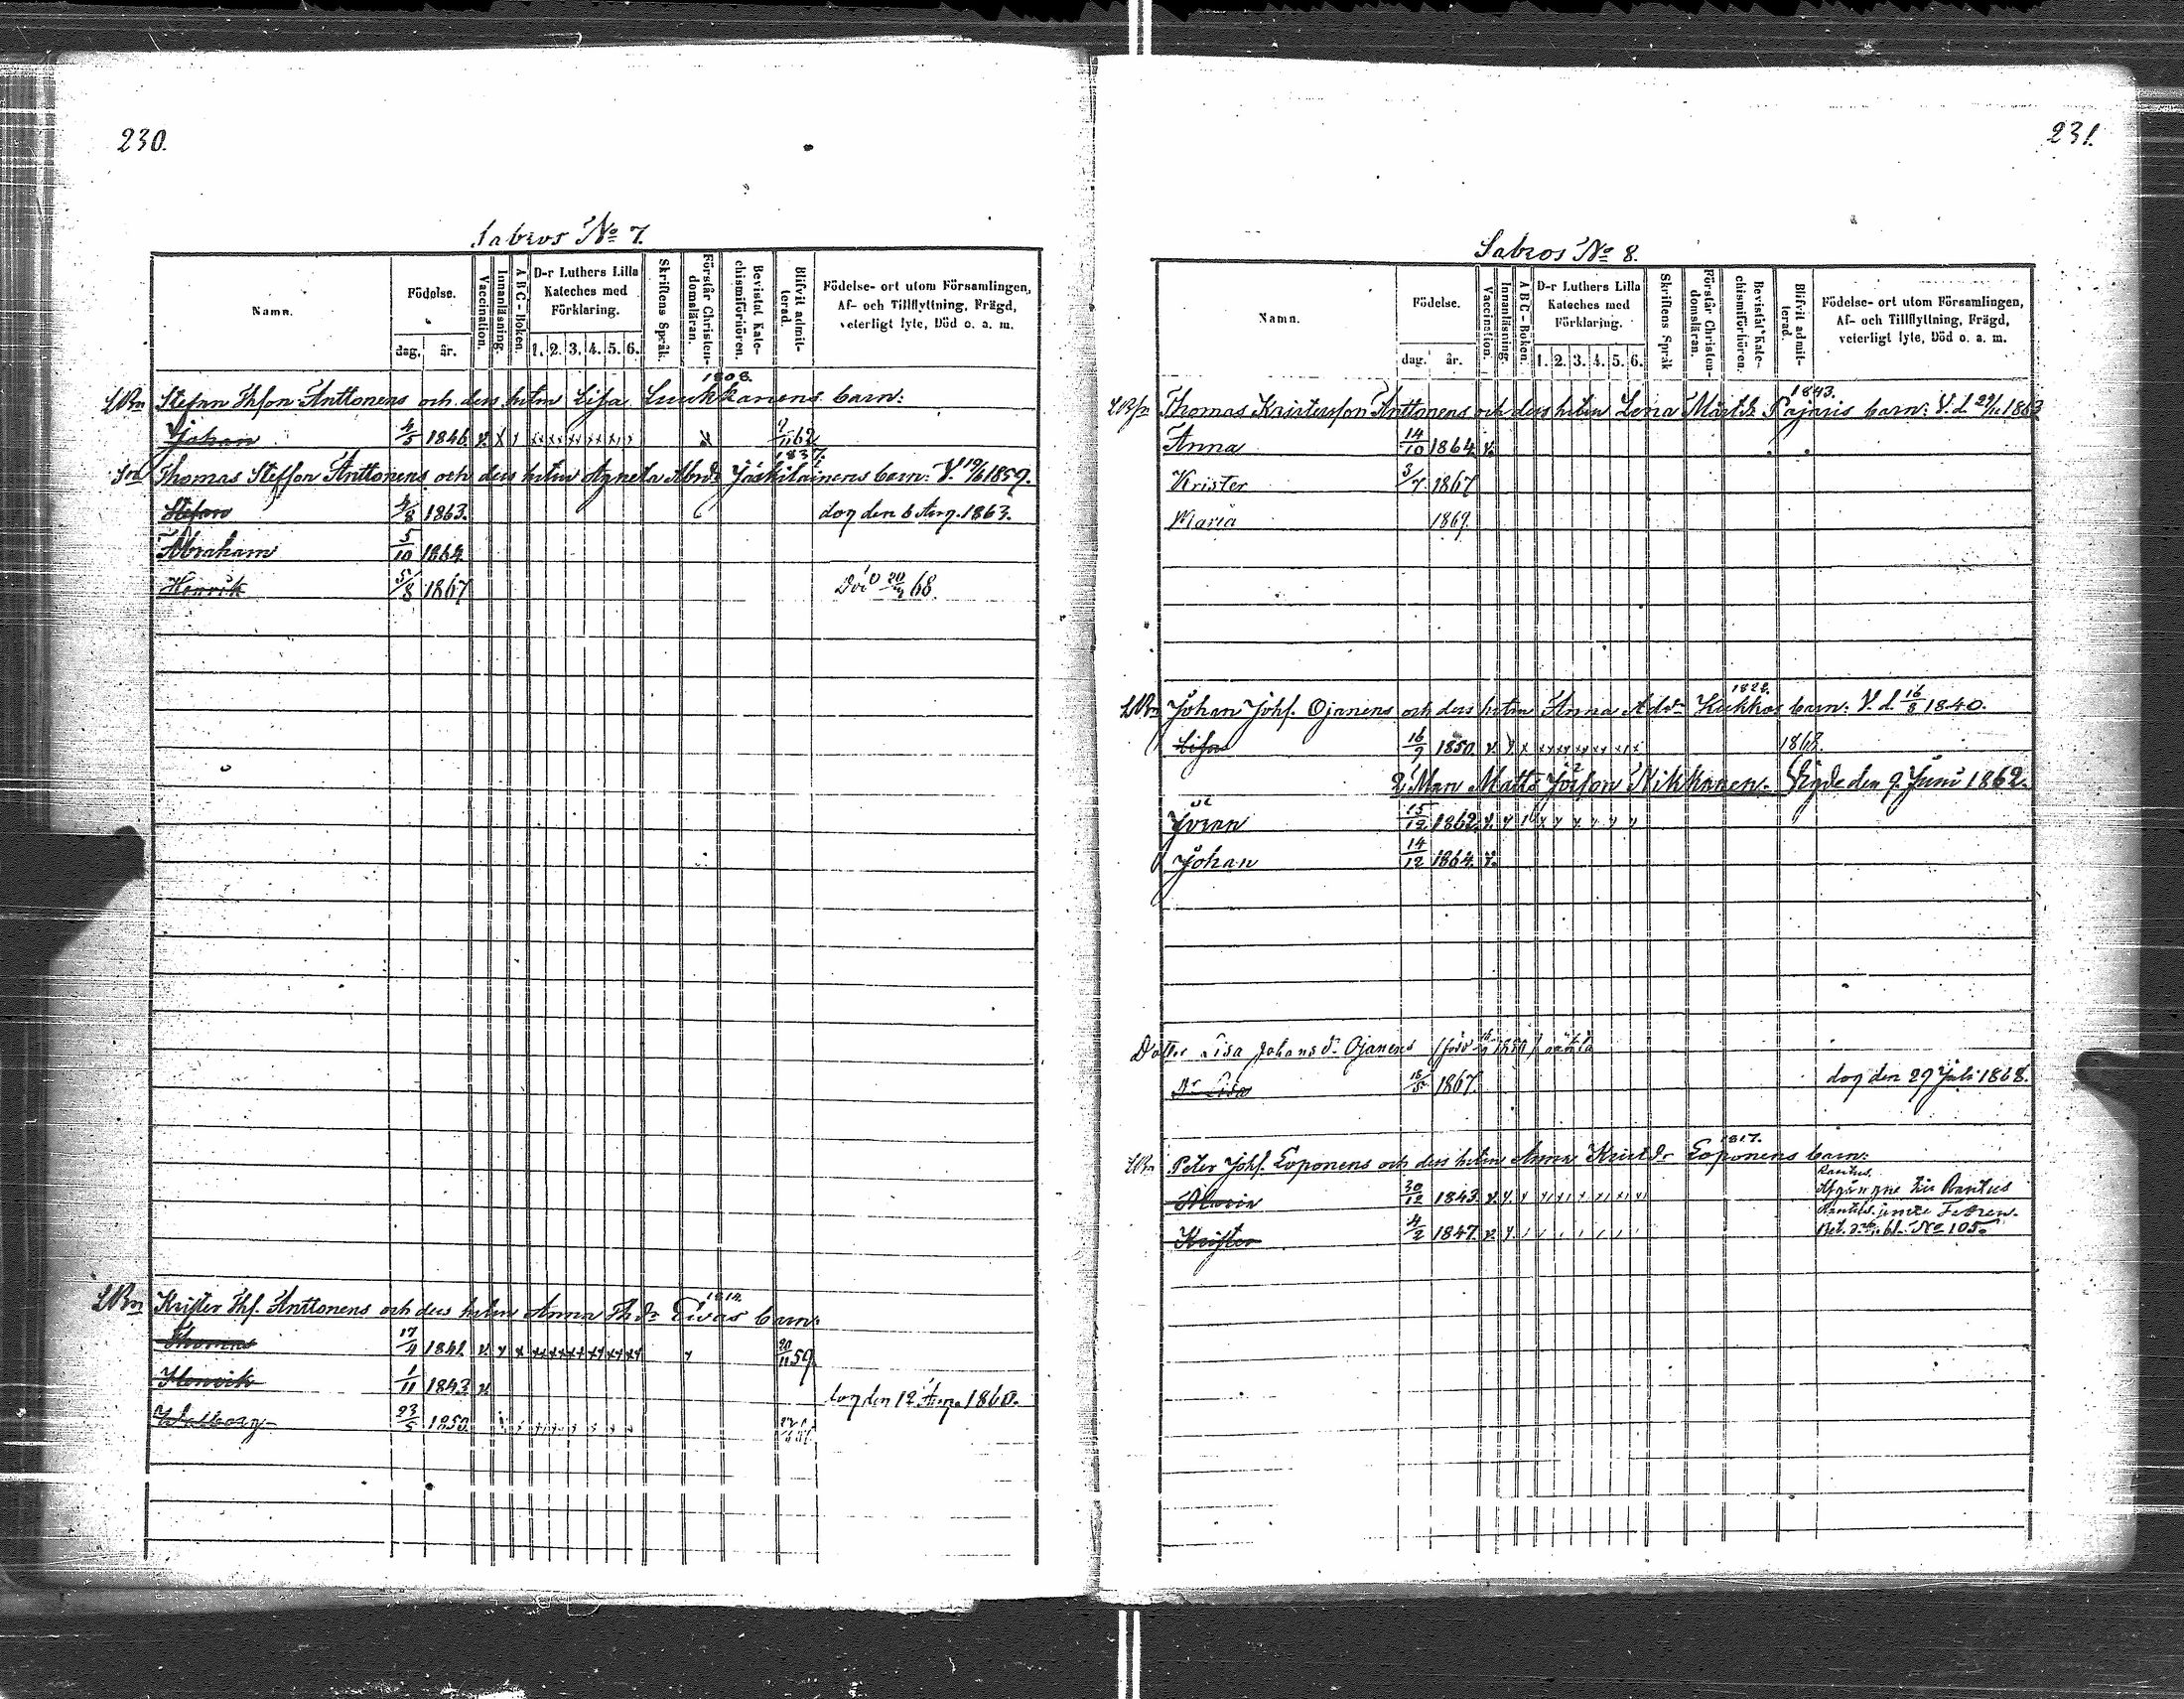 230.
Sabros No 7.
Namn.
Födelse.
dag.
år.
Vaccination.
Innanläsning.
A B C - Boken.
D-r Luthers Lilla
Kateches med
Förklaring.
1. 2. 3. 4. 5. 6.
Skriftens Språk.
Förstår Christen-
domsläran.
Bevistat Kate-
chismiförhören.
Blifvit admit-
terad.
Födelse- ort utom Församlingen,
Af- och Tillflyttning, Frägd,
veterligt lyte, Död o. a. m.
1808.
Stefan Thson Anttonens och dess hustru Lisa Luukkanens barn:
Johan 4/5 1846. v. x x xx xx xx xx x x x 62
1837.
Thomas Steffson Anttonens och dess hustru Agneta Abrd. Jäskiläinens barn: V. 1859.
Stefan 4/8 1863. dog den 6 Aug. 1863.
Abraham 5/10 1864.
Henrik 5/8 1867 Död 68.
1814.
Krister Thf. Anttonens och dess hustru Anna Thdr Ewas barn:
Thomas 17/4 1841. v. x x xx xx xx xx xx xx x 20/11 59
Henrik 1/11 1843. v. dog den 12 Aug. 1860.
Walborg 23/5 1850.
231.
Sabros No 8.
Namn.
Födelse.
dag.
år.
Vaccination.
Innanläsning.
A B C - Boken.
D-r Luthers Lilla
Kateches med
Förklaring.
1. 2. 3. 4. 5. 6.
Skriftens Språk
Förstår Christen-
domsläran.
Bevistat Kate-
chismiförhören.
Blifvit admit-
terad.
Födelse- ort utom Församlingen,
Af- och Tillflyttning, Frägd,
veterligt lyte, Död o. a. m.
1843.
Thomas Kristersson Anttonens och dess hustru Lena Märtd. Pajaris barn: V. d. 1863
Anna 14/10 1864. v.
Krister 3/7 1867
Maria 1869.
1822.
Johan Johs. Ojanens och dess hustru Anna Kukkos barn: V. d. 16/8 1840.
Lisa 16/9 1850. v. x x xx xx xx xx x x 1868.
2. Man Matts Nikkanen. Vigde den 9. Juni 1862.
Yrian 15/12 1862. v. x x x x x x x
Johan 14/12 1864. v.
Dotter Lisa Johansdr Ojanens
Dr Lisa 18/5 1867. dog den 29 Juli 1868.
1817.
Peter Johs. Loponens och dess hustru Anna Kristdr Loponens barn:
Maria 30/12 1843. v. x. x Rautus. Afgångne till Rautus
Krister 4/2 1847. v. x. No 105.